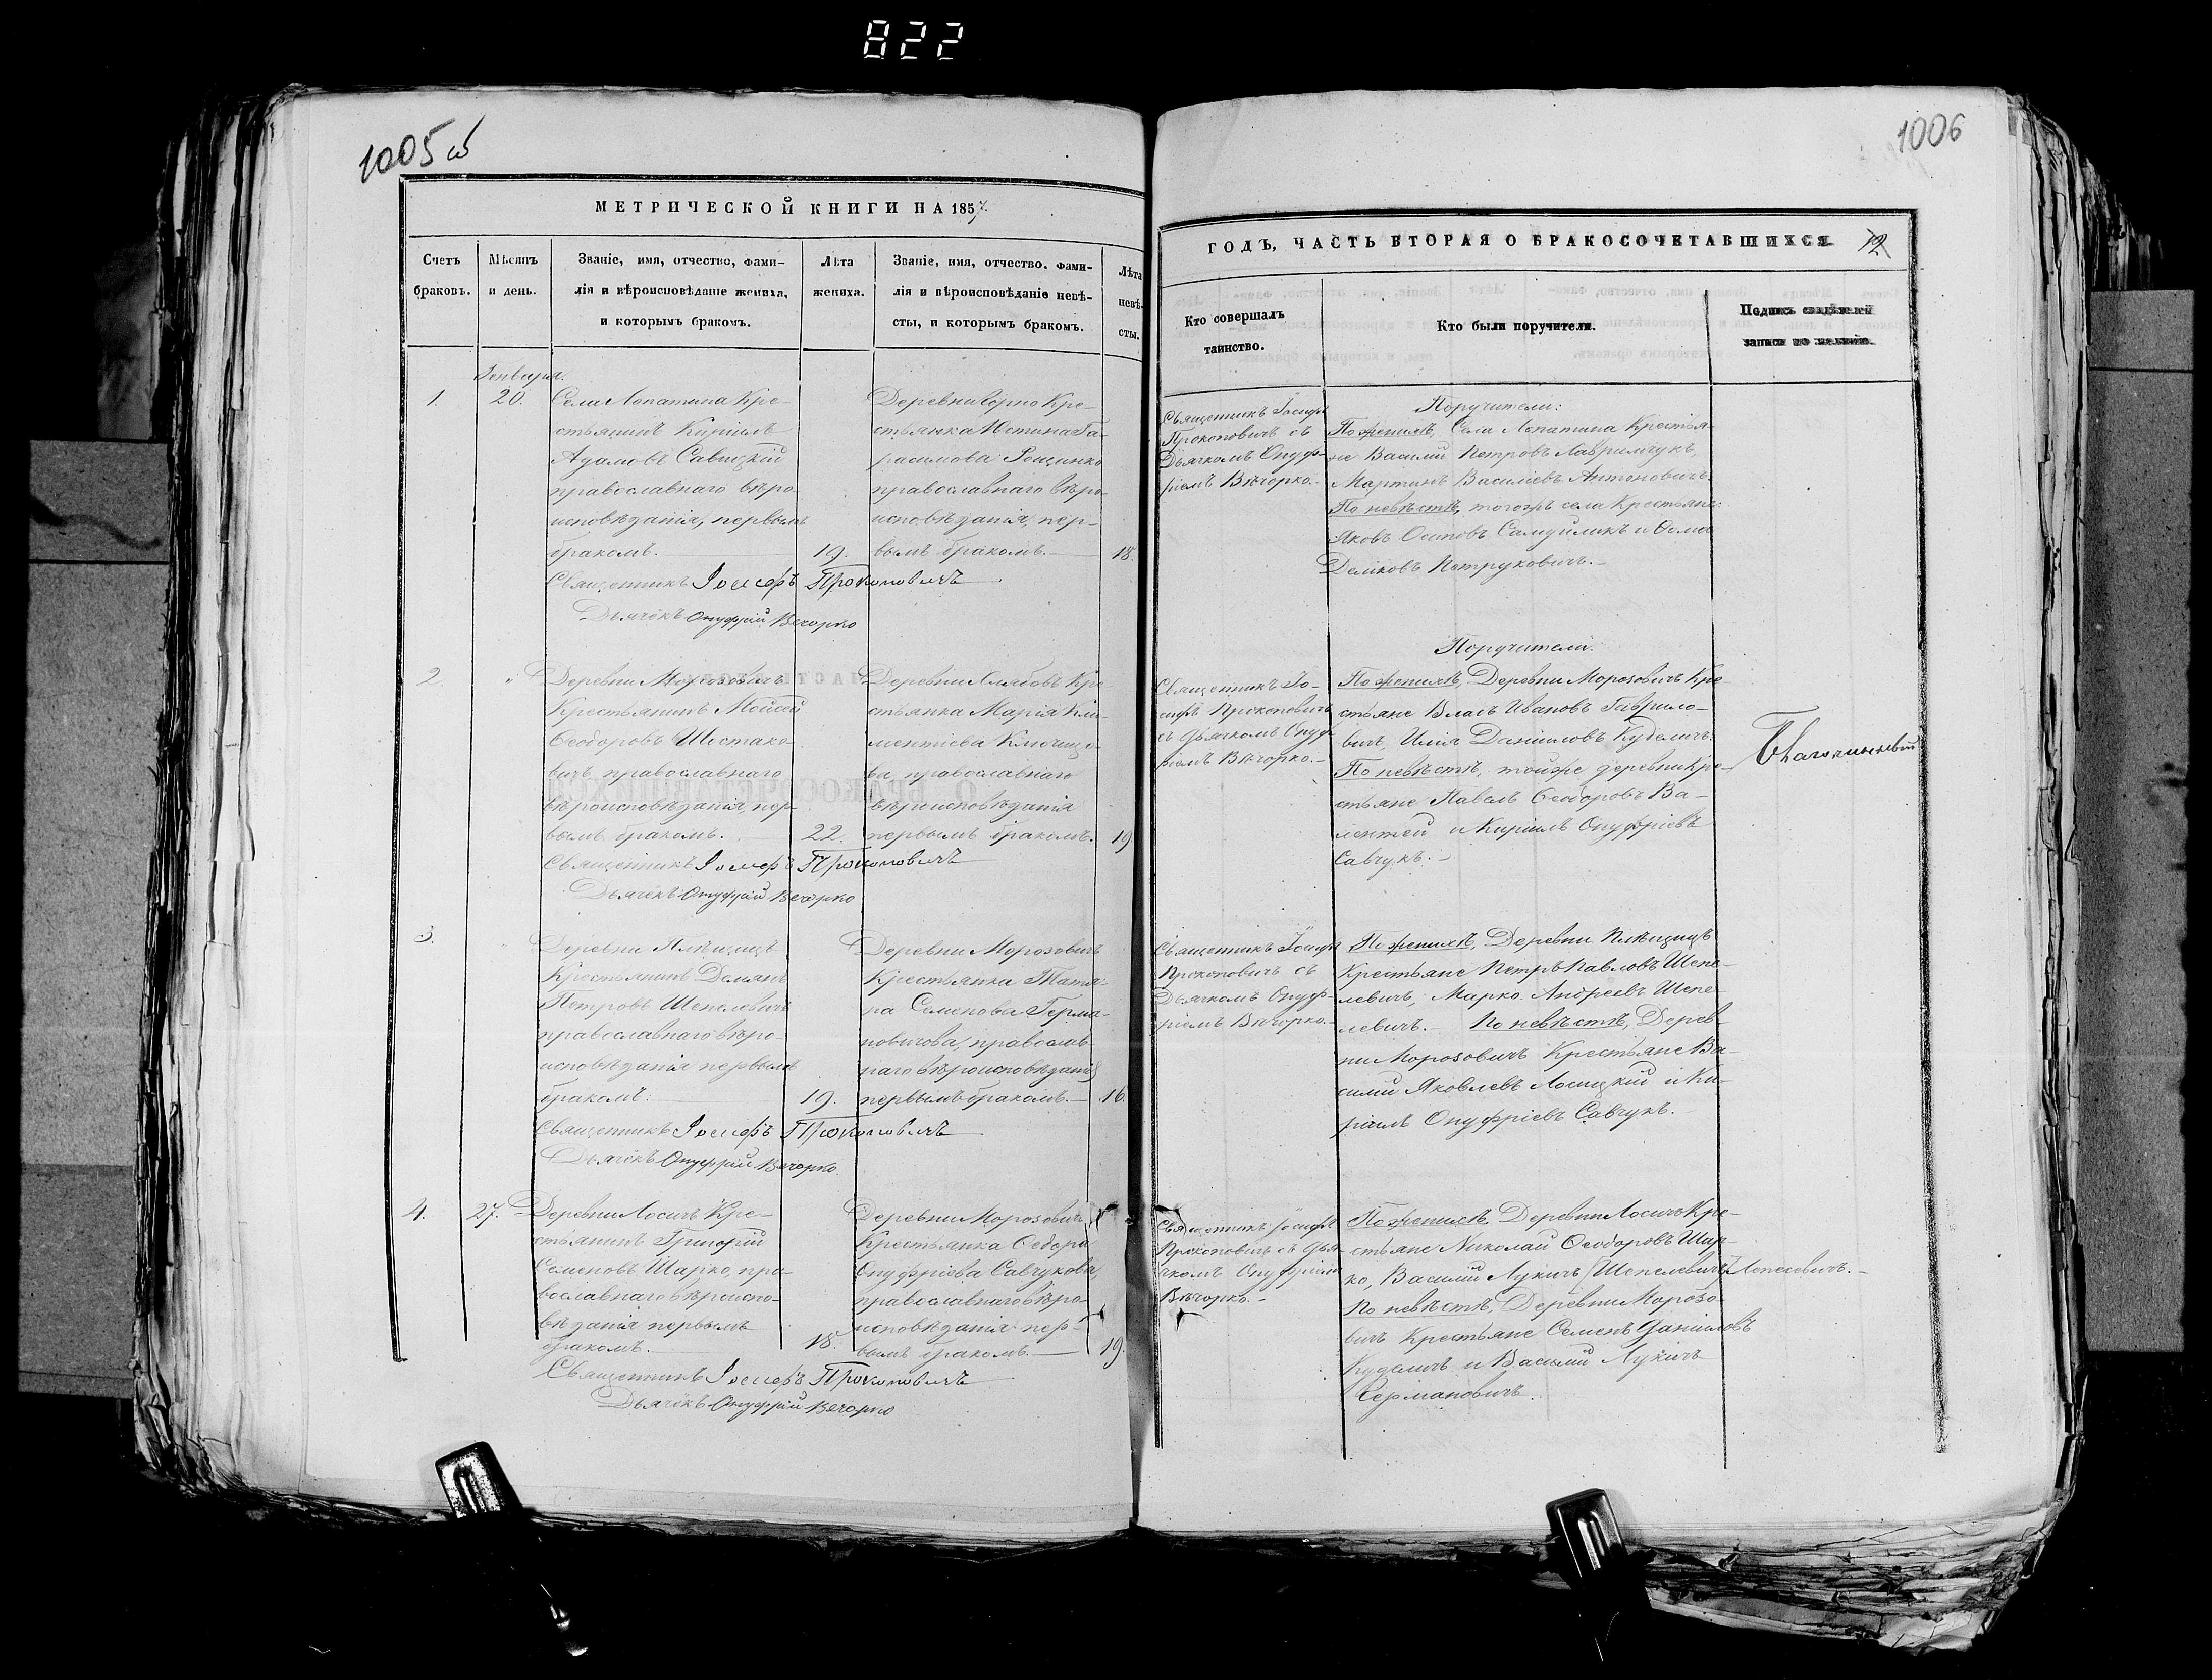 822
1005 об
МЕТРИЧЕСКОЙ КНИГИ НА 1857
Счетъ браковъ.
Мѣсяцъ и день.
Званіе, имя, отчество, фами-
лія и вѣроисповѣданіе жениха,
и которымъ бракомъ.
Лѣта жениха.
Званіе, имя, отчество, фами-
лія и вѣроисповѣданіе невѣ-
сты, и которымъ бракомъ.
Лѣта невѣ-
сты.
Генваря.
1.
20.
Села Лопатина Кре-
стьянинъ Кирилъ
Адамовъ Савицкій
православнаго вѣро-
исповѣданія, первымъ
бракомъ.
19.
Деревни Горно Кре-
стьянка Юстина Га-
расимова
православнаго вѣро-
исповѣданія, пер-
вымъ бракомъ.
18.
Священникъ Іосифъ Прокоповичъ
Дьячекъ Онуфрій Вечорко
2
"
Деревни Морозовичъ
Крестьянинъ Мойсей
Ѳеодоровъ Шестако-
вичъ православнаго
вѣроисповѣданія, пер-
вымъ бракомъ.
22.
Деревни Кре-
стьянка Марія Кли-
ментіева
ва православнаго
вѣроисповѣданія
первымъ бракомъ.
19
Священникъ Іосифъ Прокоповичъ
Дьячекъ Онуфрій Вечорко
3.
Деревни Плещицъ
Крестьянинъ Демянъ
Петровъ Шепелевичъ
православнаго вѣро-
исповѣданія первымъ
бракомъ.
19.
Деревни Морозовичъ
Крестьянка Татья-
на Семенова Герма-
новичова, православ-
наго вѣроисповѣданія
первымъ бракомъ.
16.
Священникъ Іосифъ Прокоповичъ
Дьячекъ Онуфрій Вечорко
4.
27.
Деревни Лосичъ Кре-
стьянинъ Григорій
Семеновъ Шарко, пра-
вославнаго вѣроиспо-
вѣданія первымъ
бракомъ.
18.
Деревни Морозовичъ
Крестьянка Ѳедора
Онуфріева Савчукова,
православнаго вѣро-
исповѣданія пер-
вымъ бракомъ.
19.
Священникъ Іосифъ Прокоповичъ
Дьячекъ Онуфрій Вечорко
1006
ГОДЪ, ЧАСТЬ ВТОРАЯ О БРАКОСОЧЕТАВШИХСЯ
Кто совершалъ
таинство.
Кто были поручители.
Подпись свидѣтелей
записи по желанію.
Священникъ Іосифъ
Прокоповичъ съ
Дьячкомъ Онуф-
ріемъ Вѣчорко.
Поручители:
По женихѣ, Села Лопатина Крестья-
не Василий Петровъ Лавримчукъ,
Мартинъ Василіевъ Антоновичъ.
По невѣстѣ, тогожъ села Крестьяне:
Яковъ Осиповъ Самуйликъ и Ѳома
Петруковичъ.
Священникъ Іо-
сифъ Прокоповичъ
съ Дьячкомъ Онуф-
ріемъ Вѣчорко.
Поручители:
По женихѣ, Деревни Морозовичъ Кре-
стьяне Власъ Ивановъ Гаврило-
вичъ, Илія Даниловъ Куделичъ.
По невѣстѣ, тойже деревни Кре-
стьяне Павелъ Ѳеодоровъ Ва-
лентей и Кирилъ Онуфріевъ
Савчукъ.
Благочинный
Священникъ Іосифъ
Прокоповичъ съ
Дьячкомъ Онуф-
ріемъ Вѣчорко.
По женихѣ, Деревни Плещицъ
Крестьяне Петръ Павловъ Шепе-
левичъ, Марко Андреевъ Шепе-
левичъ. По невѣстѣ, Дерев-
ни Морозовичъ Крестьяне Ва-
силий Яковлевъ Лосицкій и Ки-
рилъ Онуфріевъ Савчукъ.
Священникъ Іосифъ
Прокоповичъ съ Дья-
чкомъ Онуфріемъ
Вѣчорко.
По женихѣ, Деревни Лосичъ Кре-
стьяне Николай Ѳеодоровъ Шар-
ко, Василий Лукичъ (Шепелевичъ) Лопесевичъ.
По невѣстѣ, Деревни Морозо-
вичъ Крестьяне Семенъ Даниловъ
Куделичъ и Василий Лукичъ
Германовичъ.